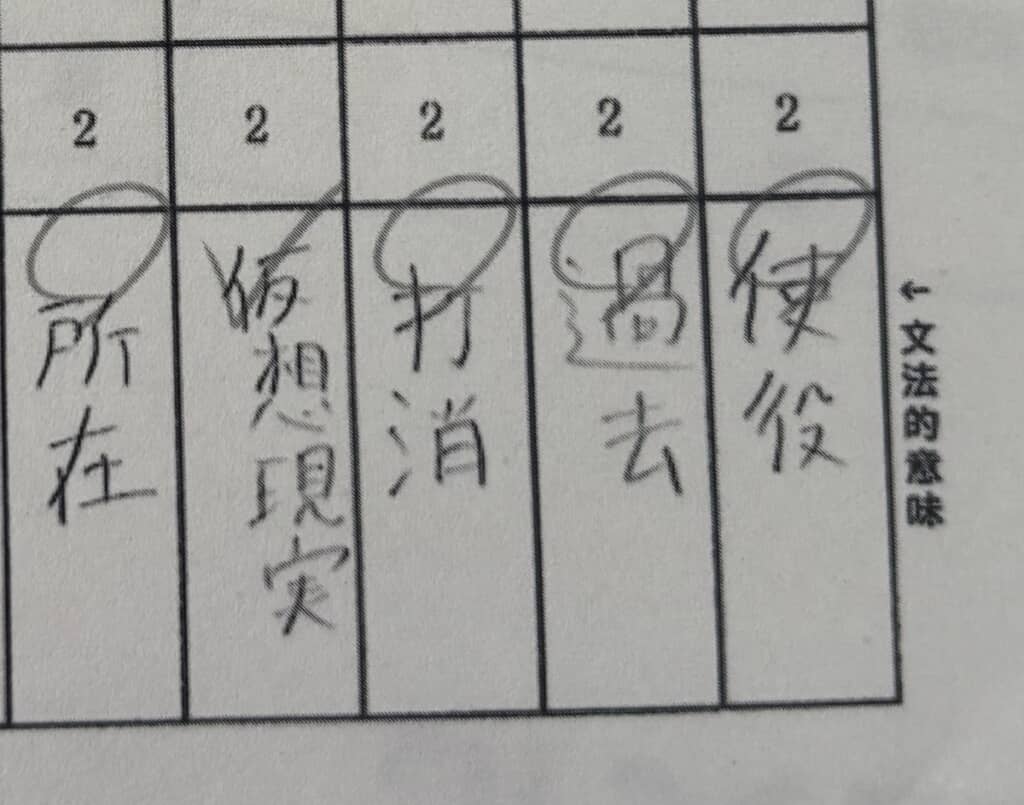 ←文法的意味
2
使役
2
過去
2
打消
2
仮想現実
2
所在